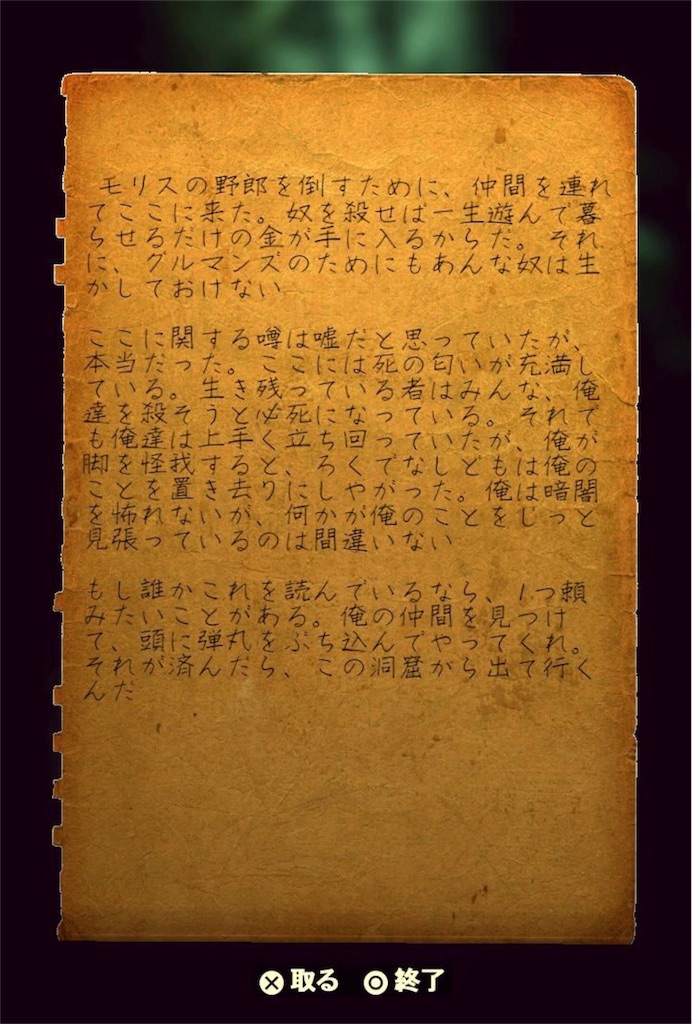 モリスの野郎を倒すために、仲間を連れ
てここに来た。奴を殺せば一生遊んで暮
らせるだけの金が手に入るからだ。それ
に、グルマンズのためにもあんな奴は生
かしておけない
ここに関する噂は嘘だと思っていたが、
本当だった。ここには死の匂いが充満し
ている。生き残っている者はみんな、俺
達を殺そうと必死になっている。それで
も俺達は上手く立ち回っていたが、俺が
脚を怪我すると、ろくでなしどもは俺の
ことを置き去りにしやがった。俺は暗闇
を怖れないが、何かが俺のことをじっと
見張っているのは間違いない
もし誰かこれを読んでいるなら、1つ頼
みたいことがある。俺の仲間を見つけ
て、頭に弾丸をぶち込んでやってくれ。
それが済んだら、この洞窟から出て行く
んだ
取る 終了